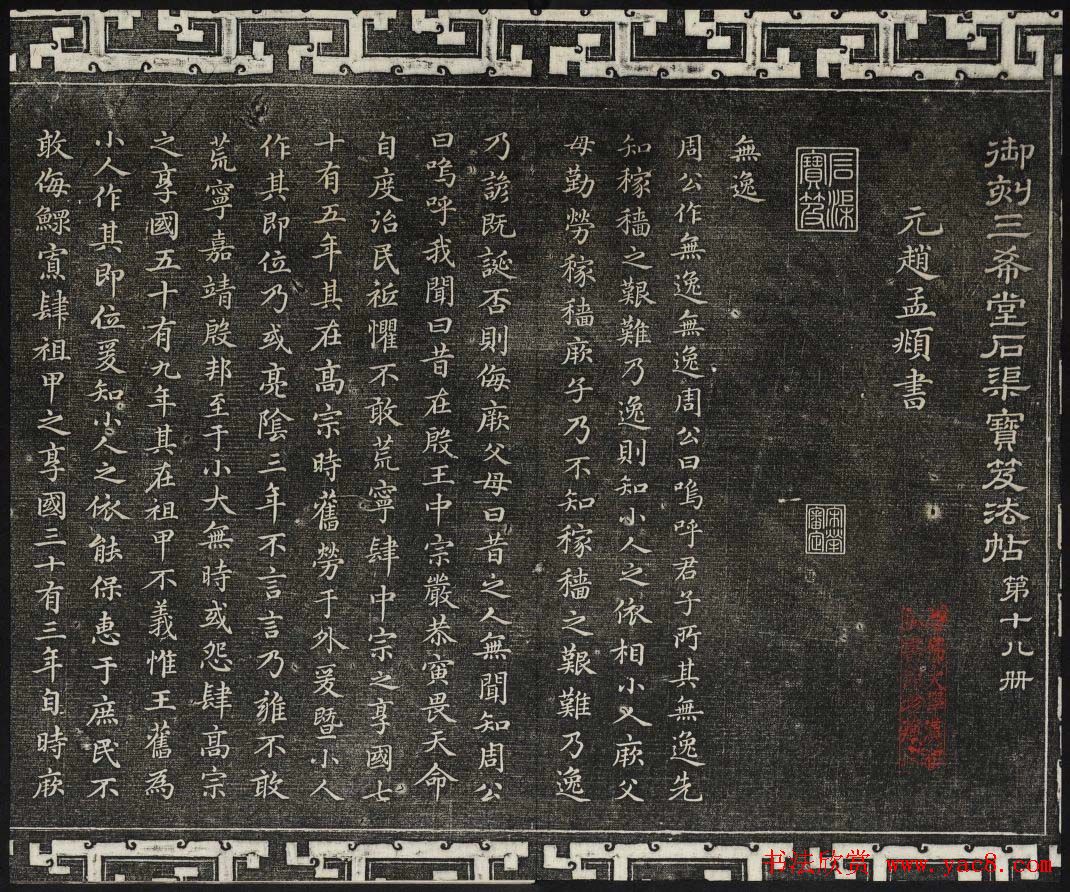 御刻三希堂石渠寶笈法帖第十八冊
元趙孟頫書
石渠寶笈
無逸
周公作無逸無逸周公曰嗚呼君子所其無逸先
知稼穡之艱難乃逸則知小人之依相小人厥父
母勤勞稼穡厥子乃不知稼穡之艱難乃逸
乃諺既誕否則侮厥父母曰昔之人無聞知周公
曰嗚呼我聞曰昔在殷王中宗嚴恭寅畏天命
自度治民祗懼不敢荒寧肆中宗之享國七
十有五年其在高宗時舊勞于外爰暨小人
作其即位乃或亮陰三年不言言乃雍不敢
荒寧嘉靖殷邦至于小大無時或怨肆高宗
之享國五十有九年其在祖甲不義惟王舊為
小人作其即位爰知小人之依能保惠于庶民不
敢侮鰥寡肆祖甲之享國三十有三年自時厥
书法欣赏 www.yac8.com